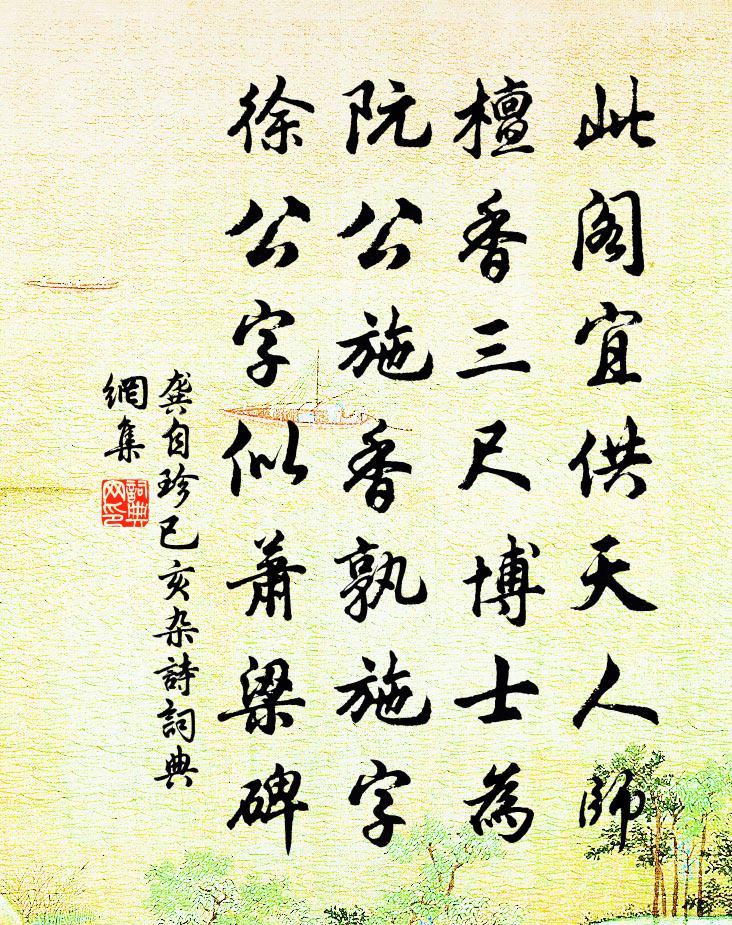 此阁宜供天人師
檀香三尺博士為
阮公施香孰施字
徐公字似萧梁碑
龚自珍己亥杂詩詞典
網集
詞典
网印